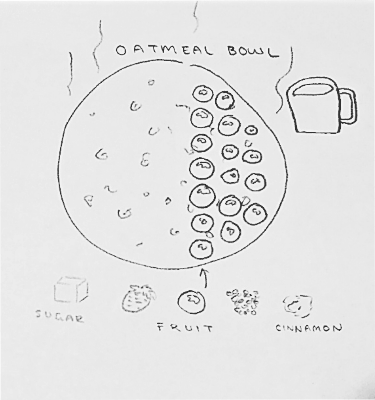 OATMEAL BOWL
SUGAR
FRUIT
CINNAMON